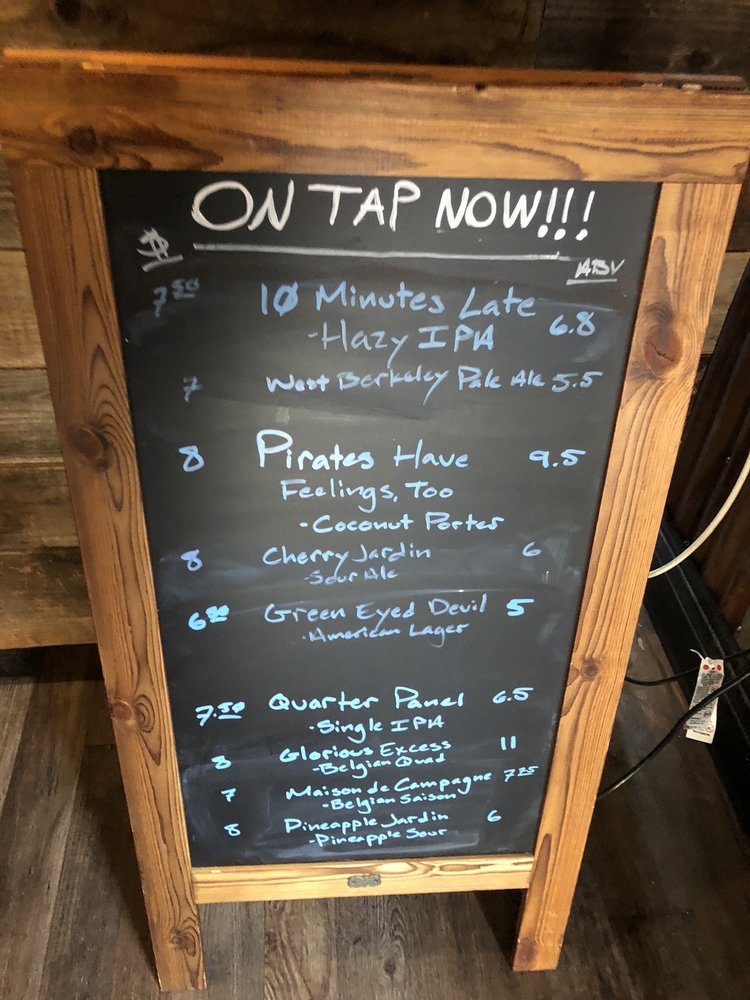 ON TAP NOW!!!
$ ABV
7.50 10 Minutes Late
-Hazy IPA 6.8
7 West Berkeley Pale Ale 5.5
8 Pirates Have 9.5
Feelings, Too
-Coconut Porter
8 Cherry Jardin 6
-Sour Ale
6.50 Green Eyed Devil 5
-American Lager
7.50 Quarter Panel 6.5
-Single IPA
8 Glorious Excess 11
-Belgian Quad
7 Maison de Campagne 7.25
-Belgian Saison
8 Pineapple Jardin 6
-Pineapple Sour